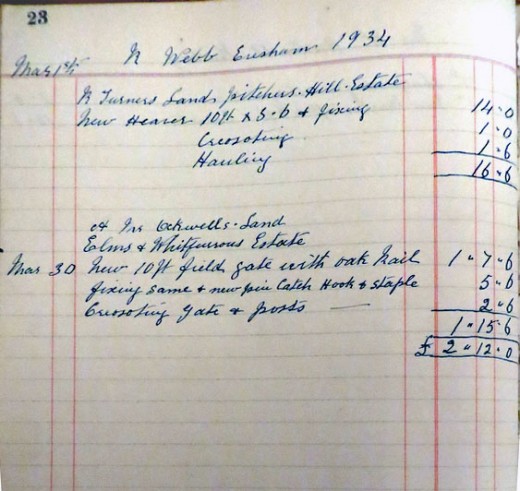 23
N Webb Evesham 1934
Mar 1st
N Turners Land Pitchers Hill Estate
New Heaver 10ft x 3·6 & fixing 14·0
Creosoting 1·0
Hauling 1·6
16·6
at Mrs Land
Elms & Estate
Mar 30 New 10ft field gate with oak Rail 1"7"6
fixing same & new Catch Hook & staple 5"6
Creosoting gate & posts — 2"6
1"15·6
£ 2"12·0